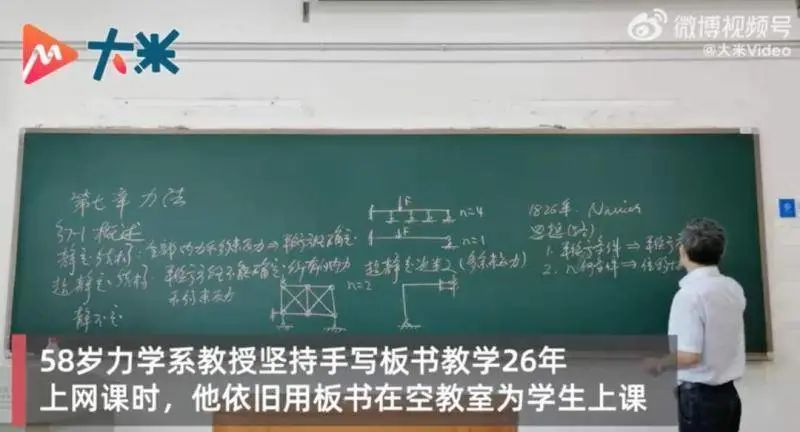 大米
微博视频号
@大米Video
第七章 力法
§7-1 概述
静定结构：全部内力和约束反力⇒静力方程确定
超静定结构：静力方程不能确定所有内力
和约束反力
静不定
F
n=4
F
n=1
超静定次数（多余约束力）
n=2
1826年. Navier
1. 静力条件⇒静力
2. 几何条件⇒
58岁力学系教授坚持手写板书教学26年
上网课时，他依旧用板书在空教室为学生上课